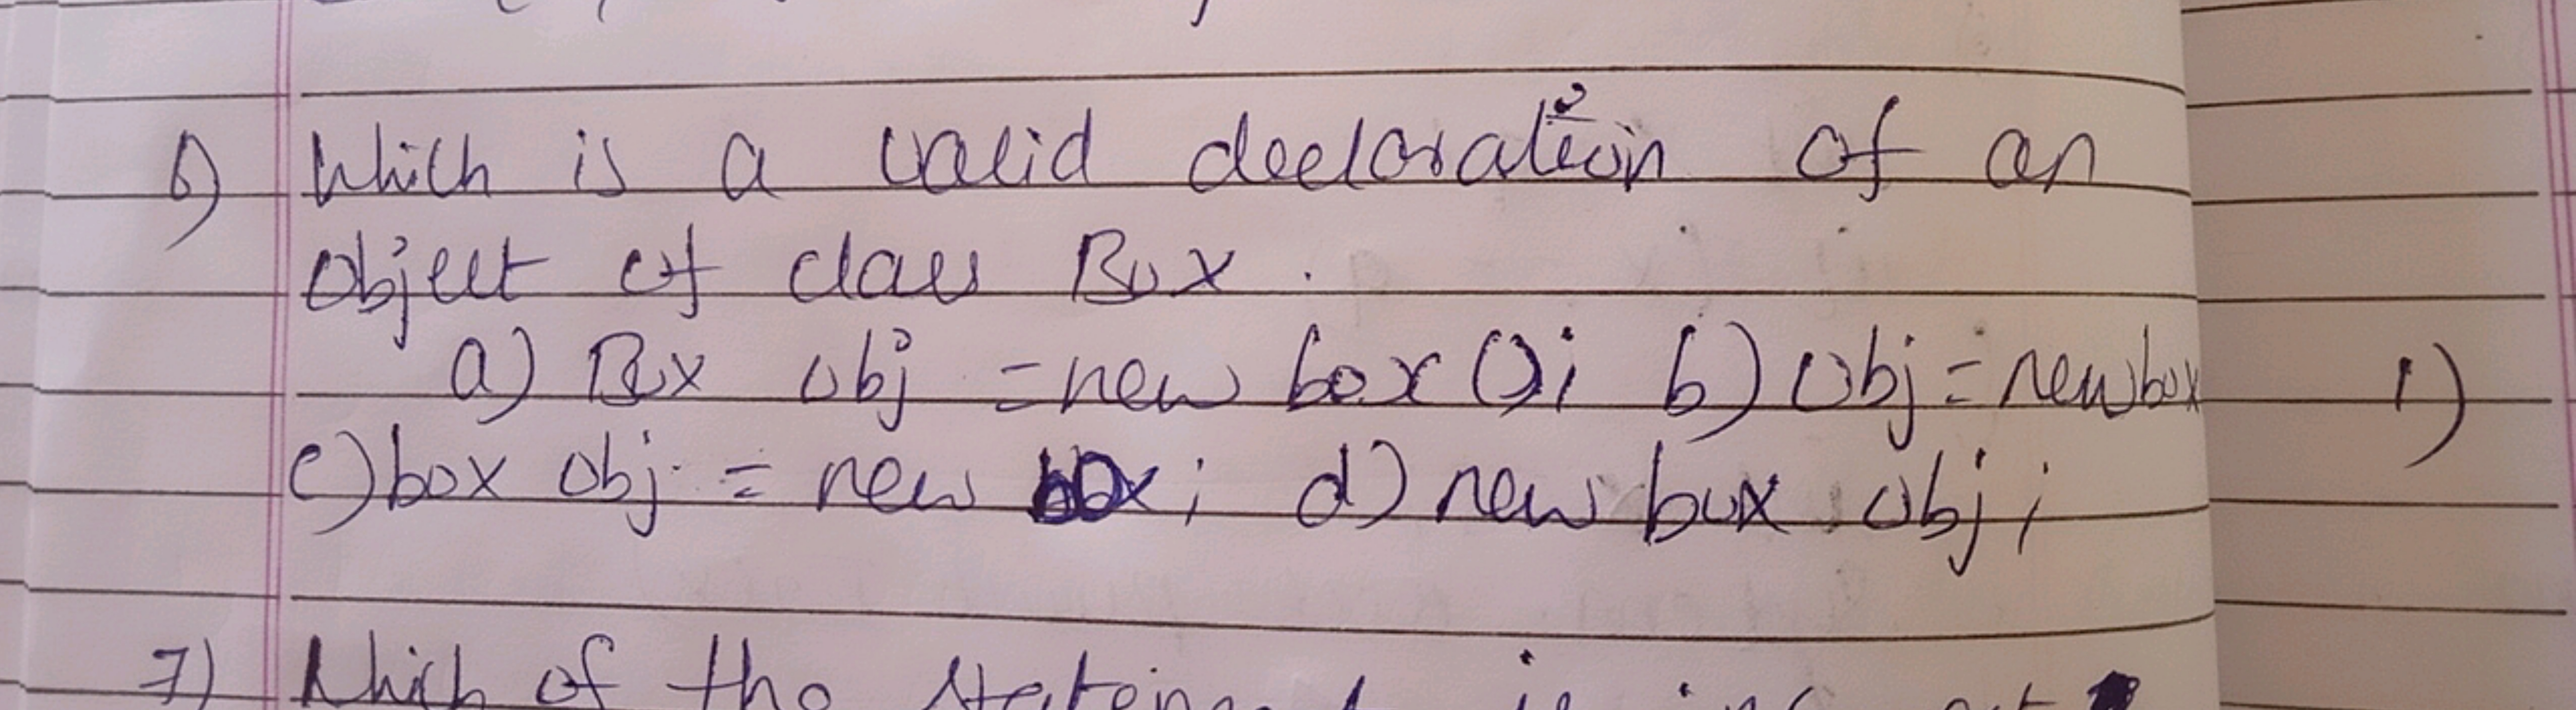 6) Which is a valid decloration of an
object of class Box .
a) Box obj = new box (); b) Obj = new box
c) box obj = new box ; d) new box obj ;
1)
7) Which of the